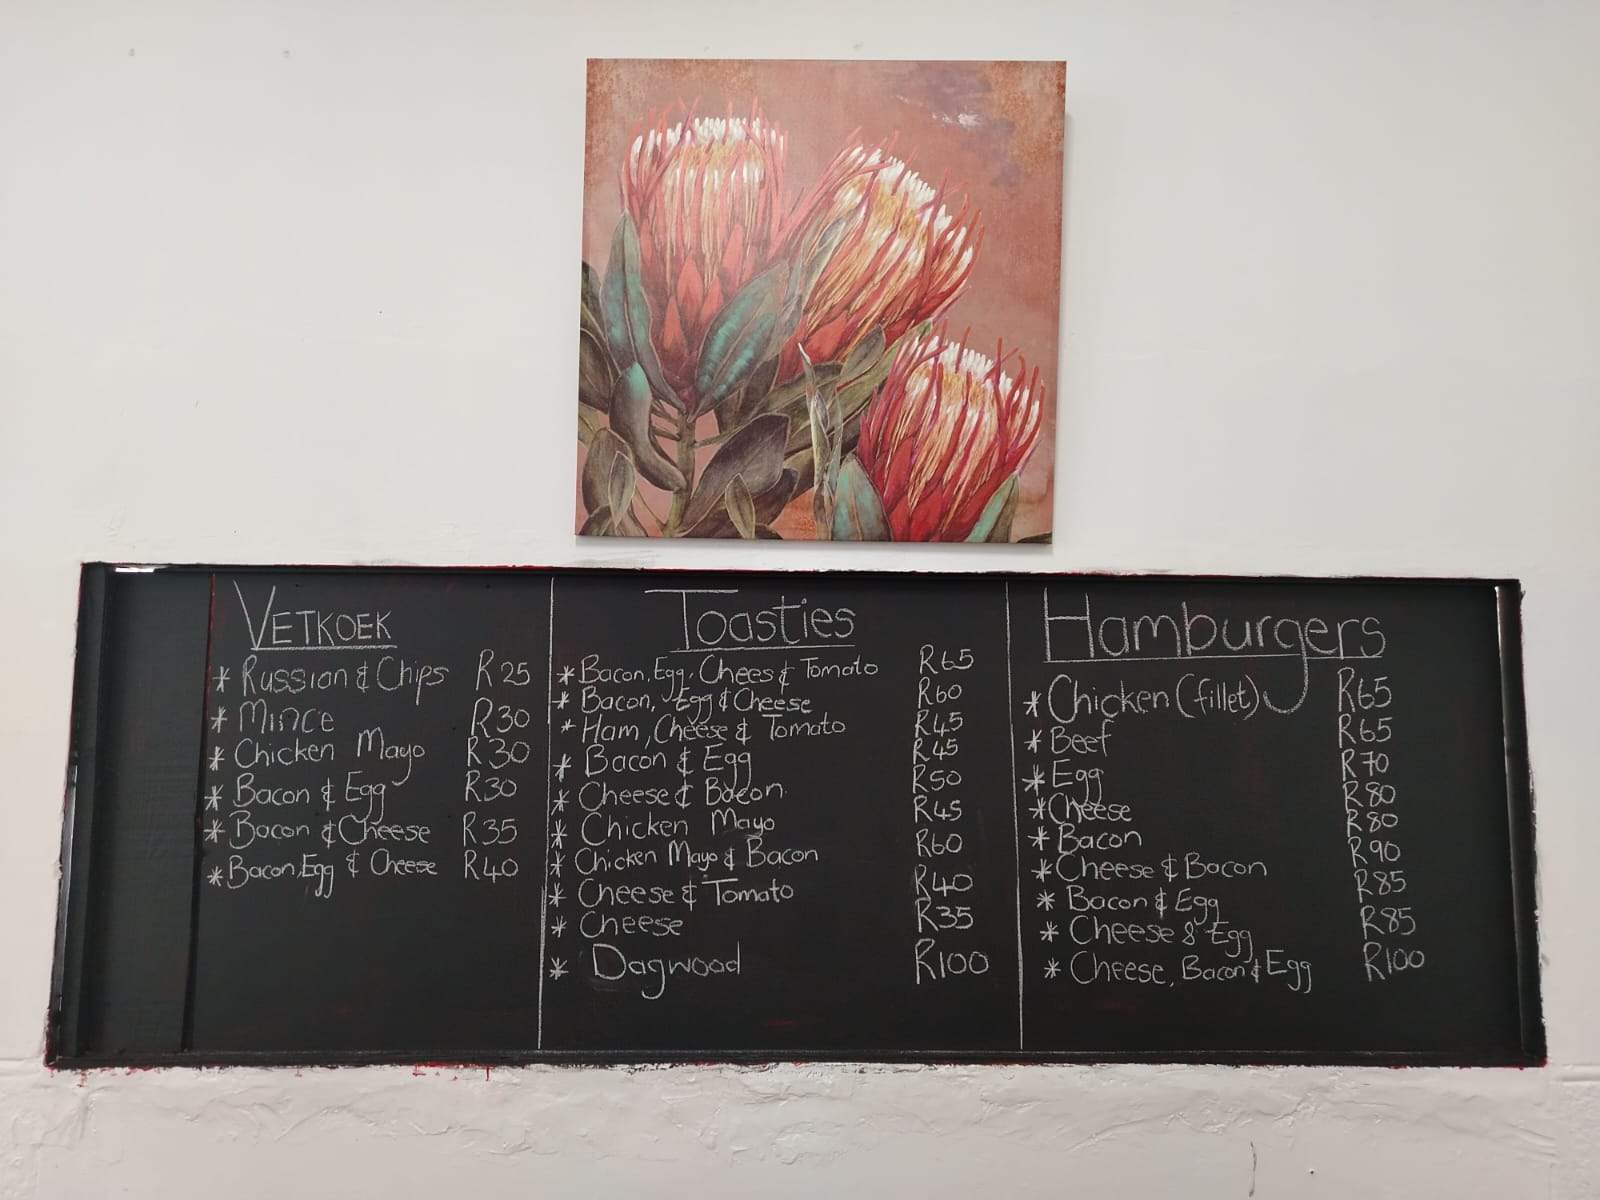 VETKOEK
* Russian & Chips R25
* Mince R30
* Chicken Mayo R30
* Bacon & Egg R30
* Bacon & Cheese R35
* Bacon, Egg & Cheese R40
Toasties
* Bacon, Egg, Chees & Tomato R65
* Bacon, Egg & Cheese R60
* Ham, Cheese & Tomato R45
* Bacon & Egg R45
* Cheese & Bacon R50
* Chicken Mayo R45
* Chicken Mayo & Bacon R60
* Cheese & Tomato R40
* Cheese R35
* Dagwood R100
Hamburgers
* Chicken (fillet) R65
* Beef R65
* Egg R70
* Cheese R80
* Bacon R80
* Cheese & Bacon R90
* Bacon & Egg R85
* Cheese & Egg R85
* Cheese, Bacon & Egg R100